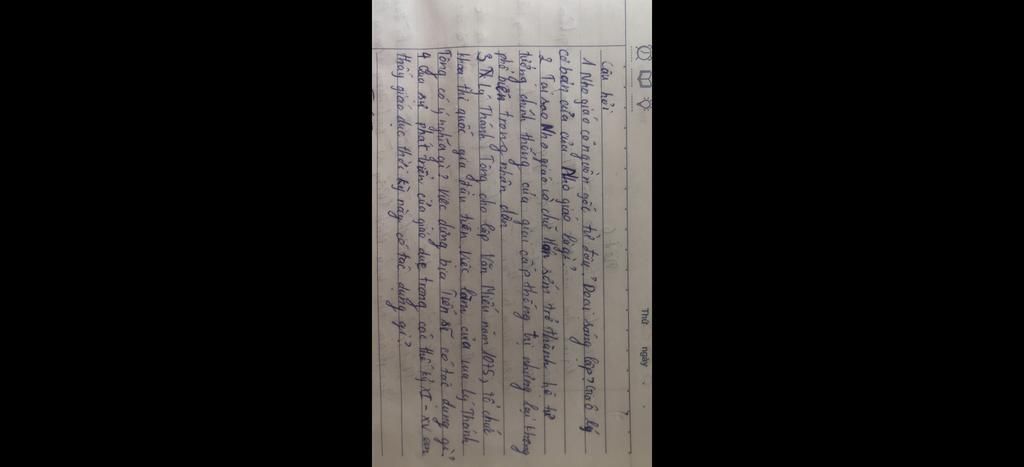 Thứ ngày
Câu hỏi
1 Nho giáo có nguồn gốc từ đâu? Do ai sáng lập? Giáo lý
cơ bản của của Nho giáo là gì?
2 Tại sao Nho giáo và chữ Hán sớm trở thành hệ tư
tưởng chính thống của giai cấp thống trị nhưng lại không
phổ biến trong nhân dân
3 Lý Thánh Tông cho lập Văn Miếu năm 1075, tổ chức
khoa thi quốc gia đầu tiên việc làm của vua Lý Thánh
Tông có ý nghĩa gì? Việc dựng bia Tiến sĩ có tác dụng gì?
4 Qua sự phát triển của giáo dục trong các thế kỷ XI - XV em
thấy giáo dục thời kỳ này có tác dụng gì?